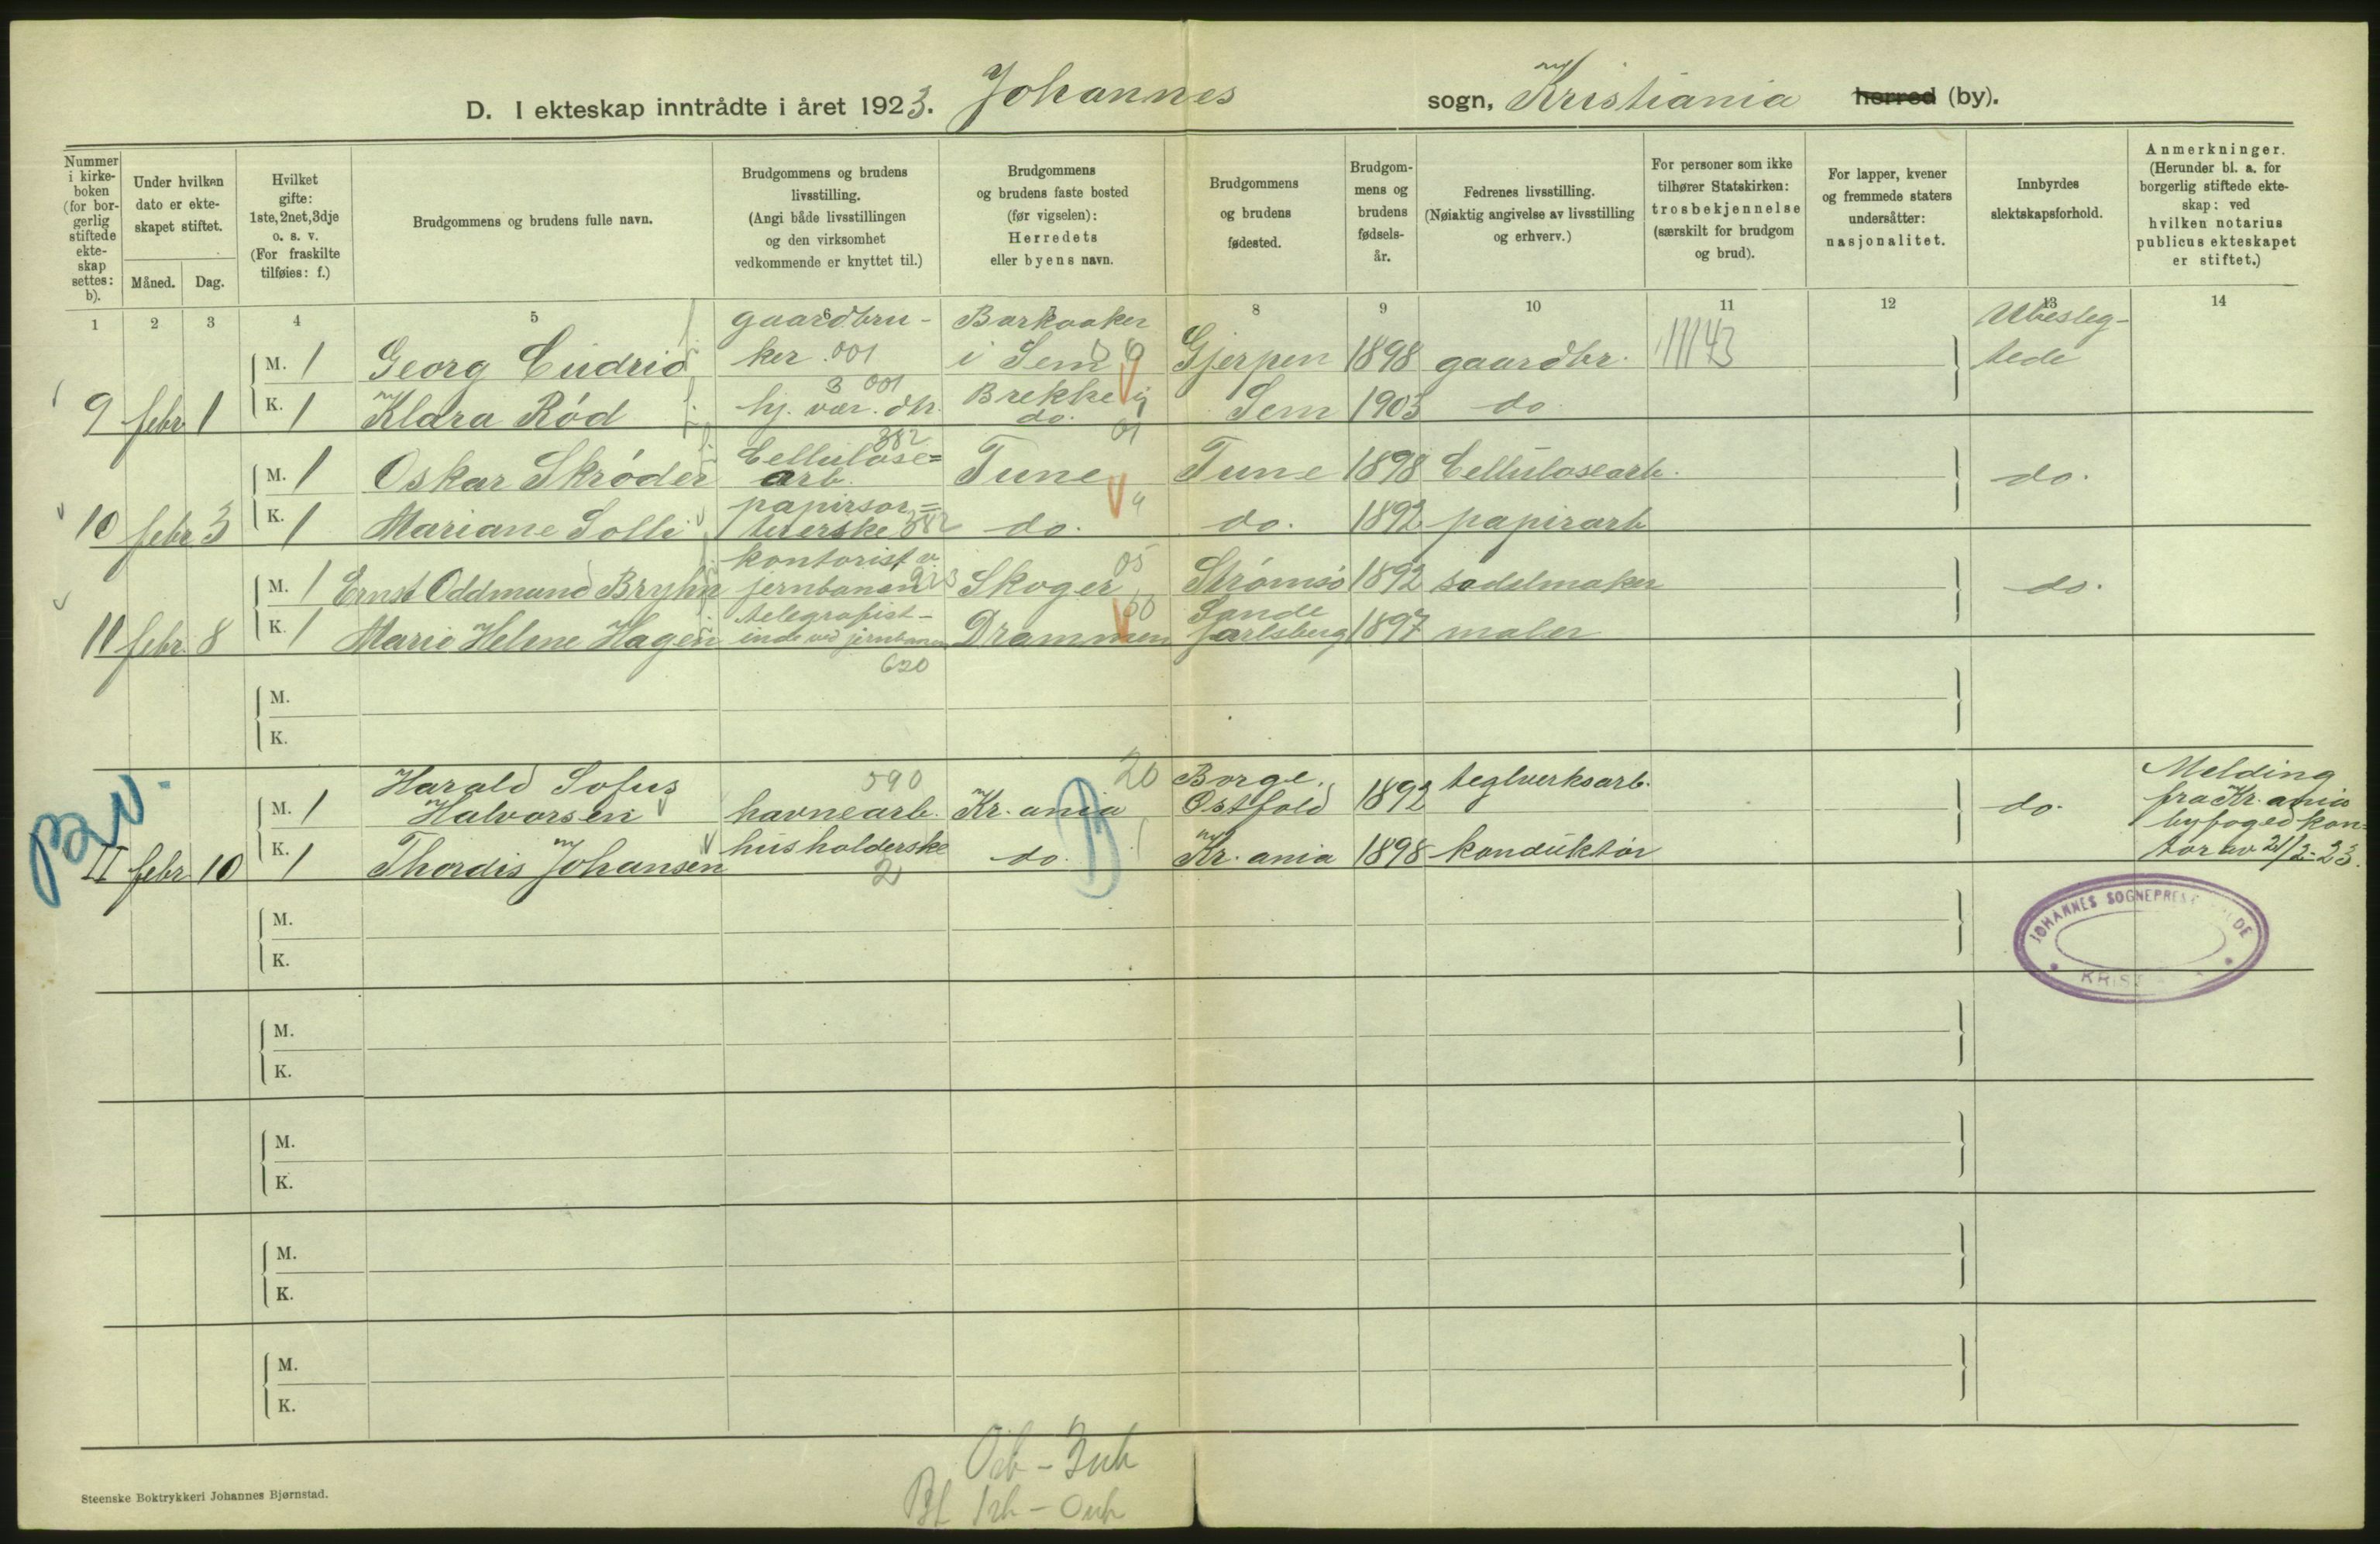 D. I ekteskap inntrådte i året 1923. Johannes sogn, Kristiania herred (by).
Nummer i kirke-boken (for bor-gerlig stiftede ekte-skap settes: b).
Under hvilken dato er ekte-skapet stiftet.
Måned. Dag.
Hvilket gifte: 1ste, 2net, 3dje o. s. v. (For fraskilte tilføies: f.)
Brudgommens og brudens fulle navn.
Brudgommens og brudens livsstilling. (Angi både livsstillingen og den virksomhet vedkommende er knyttet til.)
Brudgommens og brudens faste bosted (før vigselen): Herredets eller byens navn.
Brudgommens og brudens fødested.
Brudgom-mens og brudens fødsels-år.
Fedrenes livsstilling. (Nøiaktig angivelse av livsstilling og erhverv.)
For personer som ikke tilhører Statskirken: trosbekjennelse (særskilt for brudgom og brud).
For lapper, kvener og fremmede staters undersåtter: nasjonalitet.
Innbyrdes slektskapsforhold.
Anmerkninger. (Herunder bl. a. for borgerlig stiftede ekte-skap: ved hvilken notarius publicus ekteskapet er stiftet.)
1 2 3 4 5 6 8 9 10 11 12 13 14
gaardbru- Barkaaker Ubesleg-
M. 1 Georg Eidrid ker 001 i Sem Gjerpen 1898 gaardbr. tede
3 001
9 febr 1 K. 1 Klara Rød hj. vær. dh. Brekke i do. Sem 1903 do
382 01
M. 1 Oskar Skrøder Cellulose= arb. Tune Tune 1898 Cellulosearb. do.
10 febr 3 K. 1 Mariane Solli papirsor= tererske 382 do. do. 1892 papirarb
05
M. 1 Ernst Oddmund Bryhn kontorist v. jernbanen Skoger Strømsø 1892 sadelmaker do.
11 febr. 8 K. 1 Marie Helene Hagen telegrafist- inde ved jernbanen Drammen Sande Jarlsberg 1897 maler
620
M.
K.
Harald Sofus 590 20 Borge. teglverksarb. Melding
M. 1 Halvorsen havnearb. Kr.ania Østfold 1892 do. fra Kr.ania
byfogedkon=
II febr 10 K. 1 Thordis Johansen husholderske do. Kr.ania 1898 konduktør tor av 21/2-23.
2
JOHANNES SOGNEPREST
M.
K.
M.
K.
M.
K.
M.
K.
M.
K.
Steenske Boktrykkeri Johannes Bjørnstad.